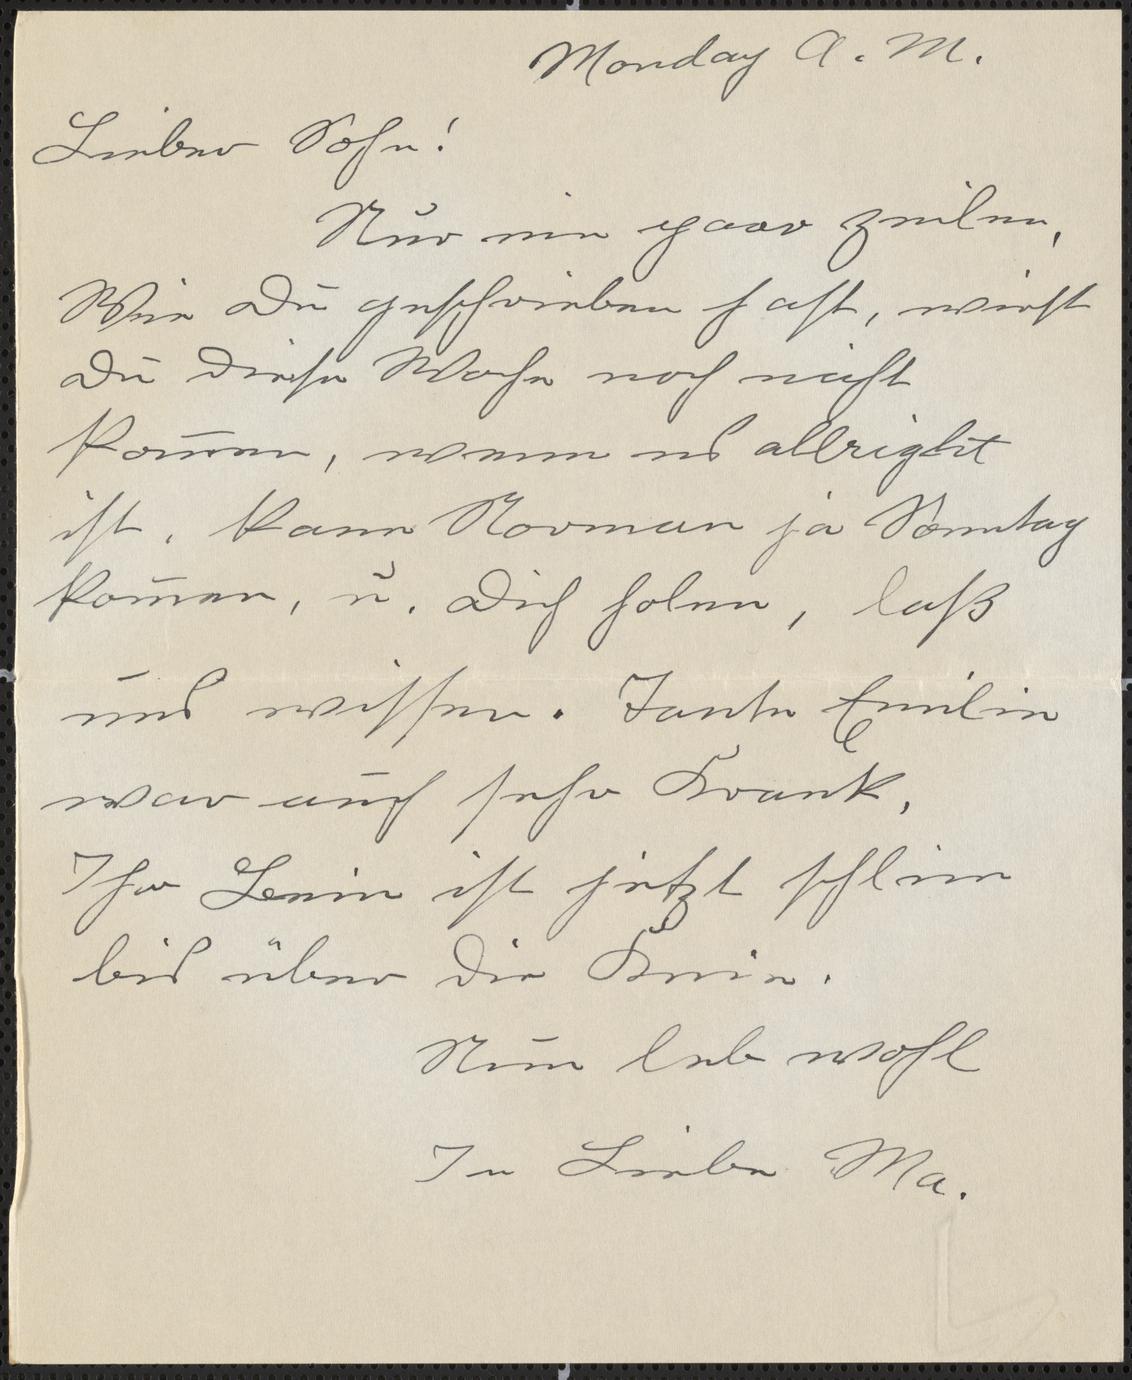 Monday A. M.
Lieber Sohn!
Nur ein paar zeilen,
Wie Du geschrieben hast, wirst
Du diese Woche noch nicht
kom̅en, wenn es allright
ist, kann Norman ja Sonntag
kom̅en, u. Dich holen, laß
uns wissen. Tante Emilie
war auch sehr Krank,
Ihr Bein ist jetzt schlim
bis über die Knie.
Nun leb wohl
In Liebe Ma.